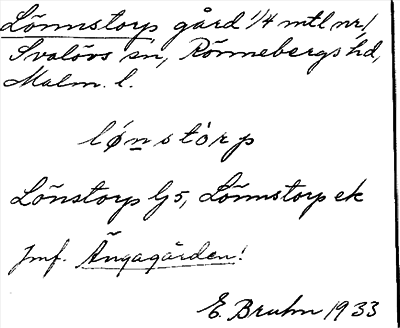 Lönnstorp gård 1/4 mtl nr 1
Svalövs sn, Rönnebergs hd,
Malm. l.
lø̱nstòrp
Lönstorp lj 5, Lönnstorp ek
Jmf. Ängagården!
E. Bruhn 1933